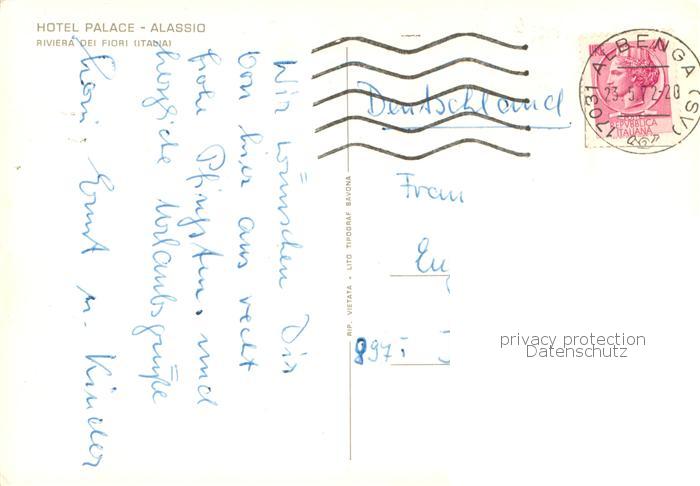 HOTEL PALACE - ALASSIO
RIVIERA DEI FIORI (ITALIA)
Wir wünschen Dir
von hier aus recht
frohe Pfingsten. und
herzliche Urlaubsgrüße
Ernst u. Kinder
RIP. VIETATA - LITO TIPOGRAF SAVONA
17031 ALBENGA (SV)
23-5-72-20
REPVBBLICA
ITALIANA
Deutschland
Frau
Eu
897
privacy protection
Datenschutz